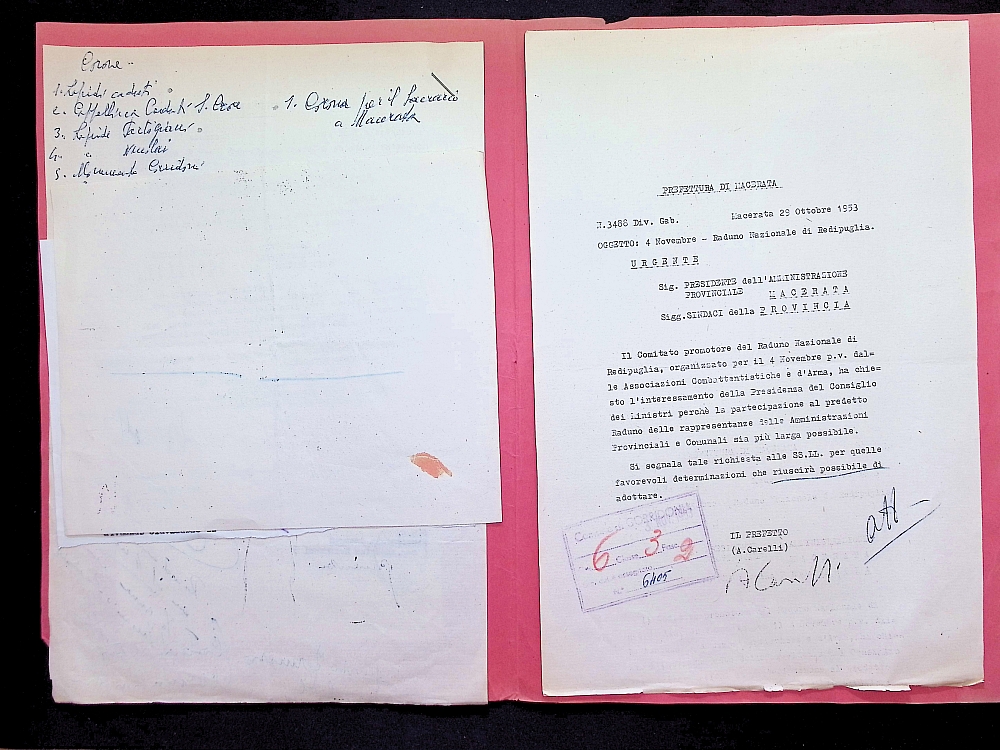 Corone -
1. Lapidi caduti
2. Cappellina Caduti S. Croce
3. Lapide Partigiani
4. "
5. Monumento Corridoni
1. Corona per il Sacrario
a Macerata
PREFETTURA DI MACERATA
N.3488 Div. Gab. Macerata 29 Ottobre 1953
OGGETTO: 4 Novembre - Raduno Nazionale di Redipuglia.
URGENTE
Sig. PRESIDENTE dell'AMMINISTRAZIONE
PROVINCIALE MACERATA
Sigg.SINDACI della PROVINCIA
Il Comitato promotore del Raduno Nazionale di
Redipuglia, organizzato per il 4 Novembre p.v. dal=
le Associazioni Combattentistiche e d'Arma, ha chie=
sto l'interessamento della Presidenza del Consiglio
dei Ministri perchè la partecipazione al predetto
Raduno delle rappresentanze delle Amministrazioni
Provinciali e Comunali sia più larga possibile.
Si segnala tale richiesta alle SS.LL. per quelle
favorevoli determinazioni che riuscirà possibile di
adottare.
CORRIDONIA
6 Classe 3 Fasc. 2
6405
IL PREFETTO
(A.Carelli)
atti